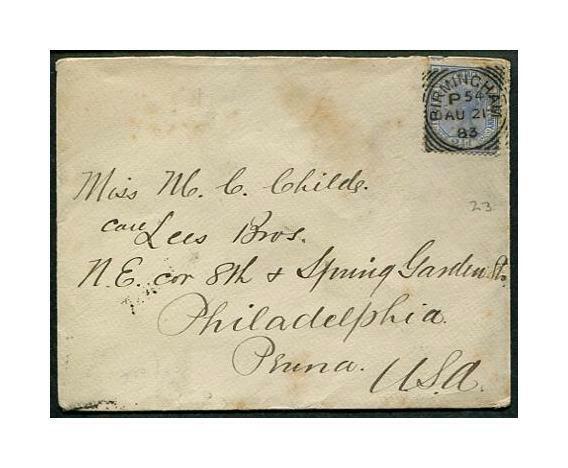 BIRMINGHAM
P 54
AU 21
83
Miss M. C. Childs.
care Lees Bros.
N.E. cor 8th & Spring Garden St.
Philadelphia
Penna. U.S.A.
23